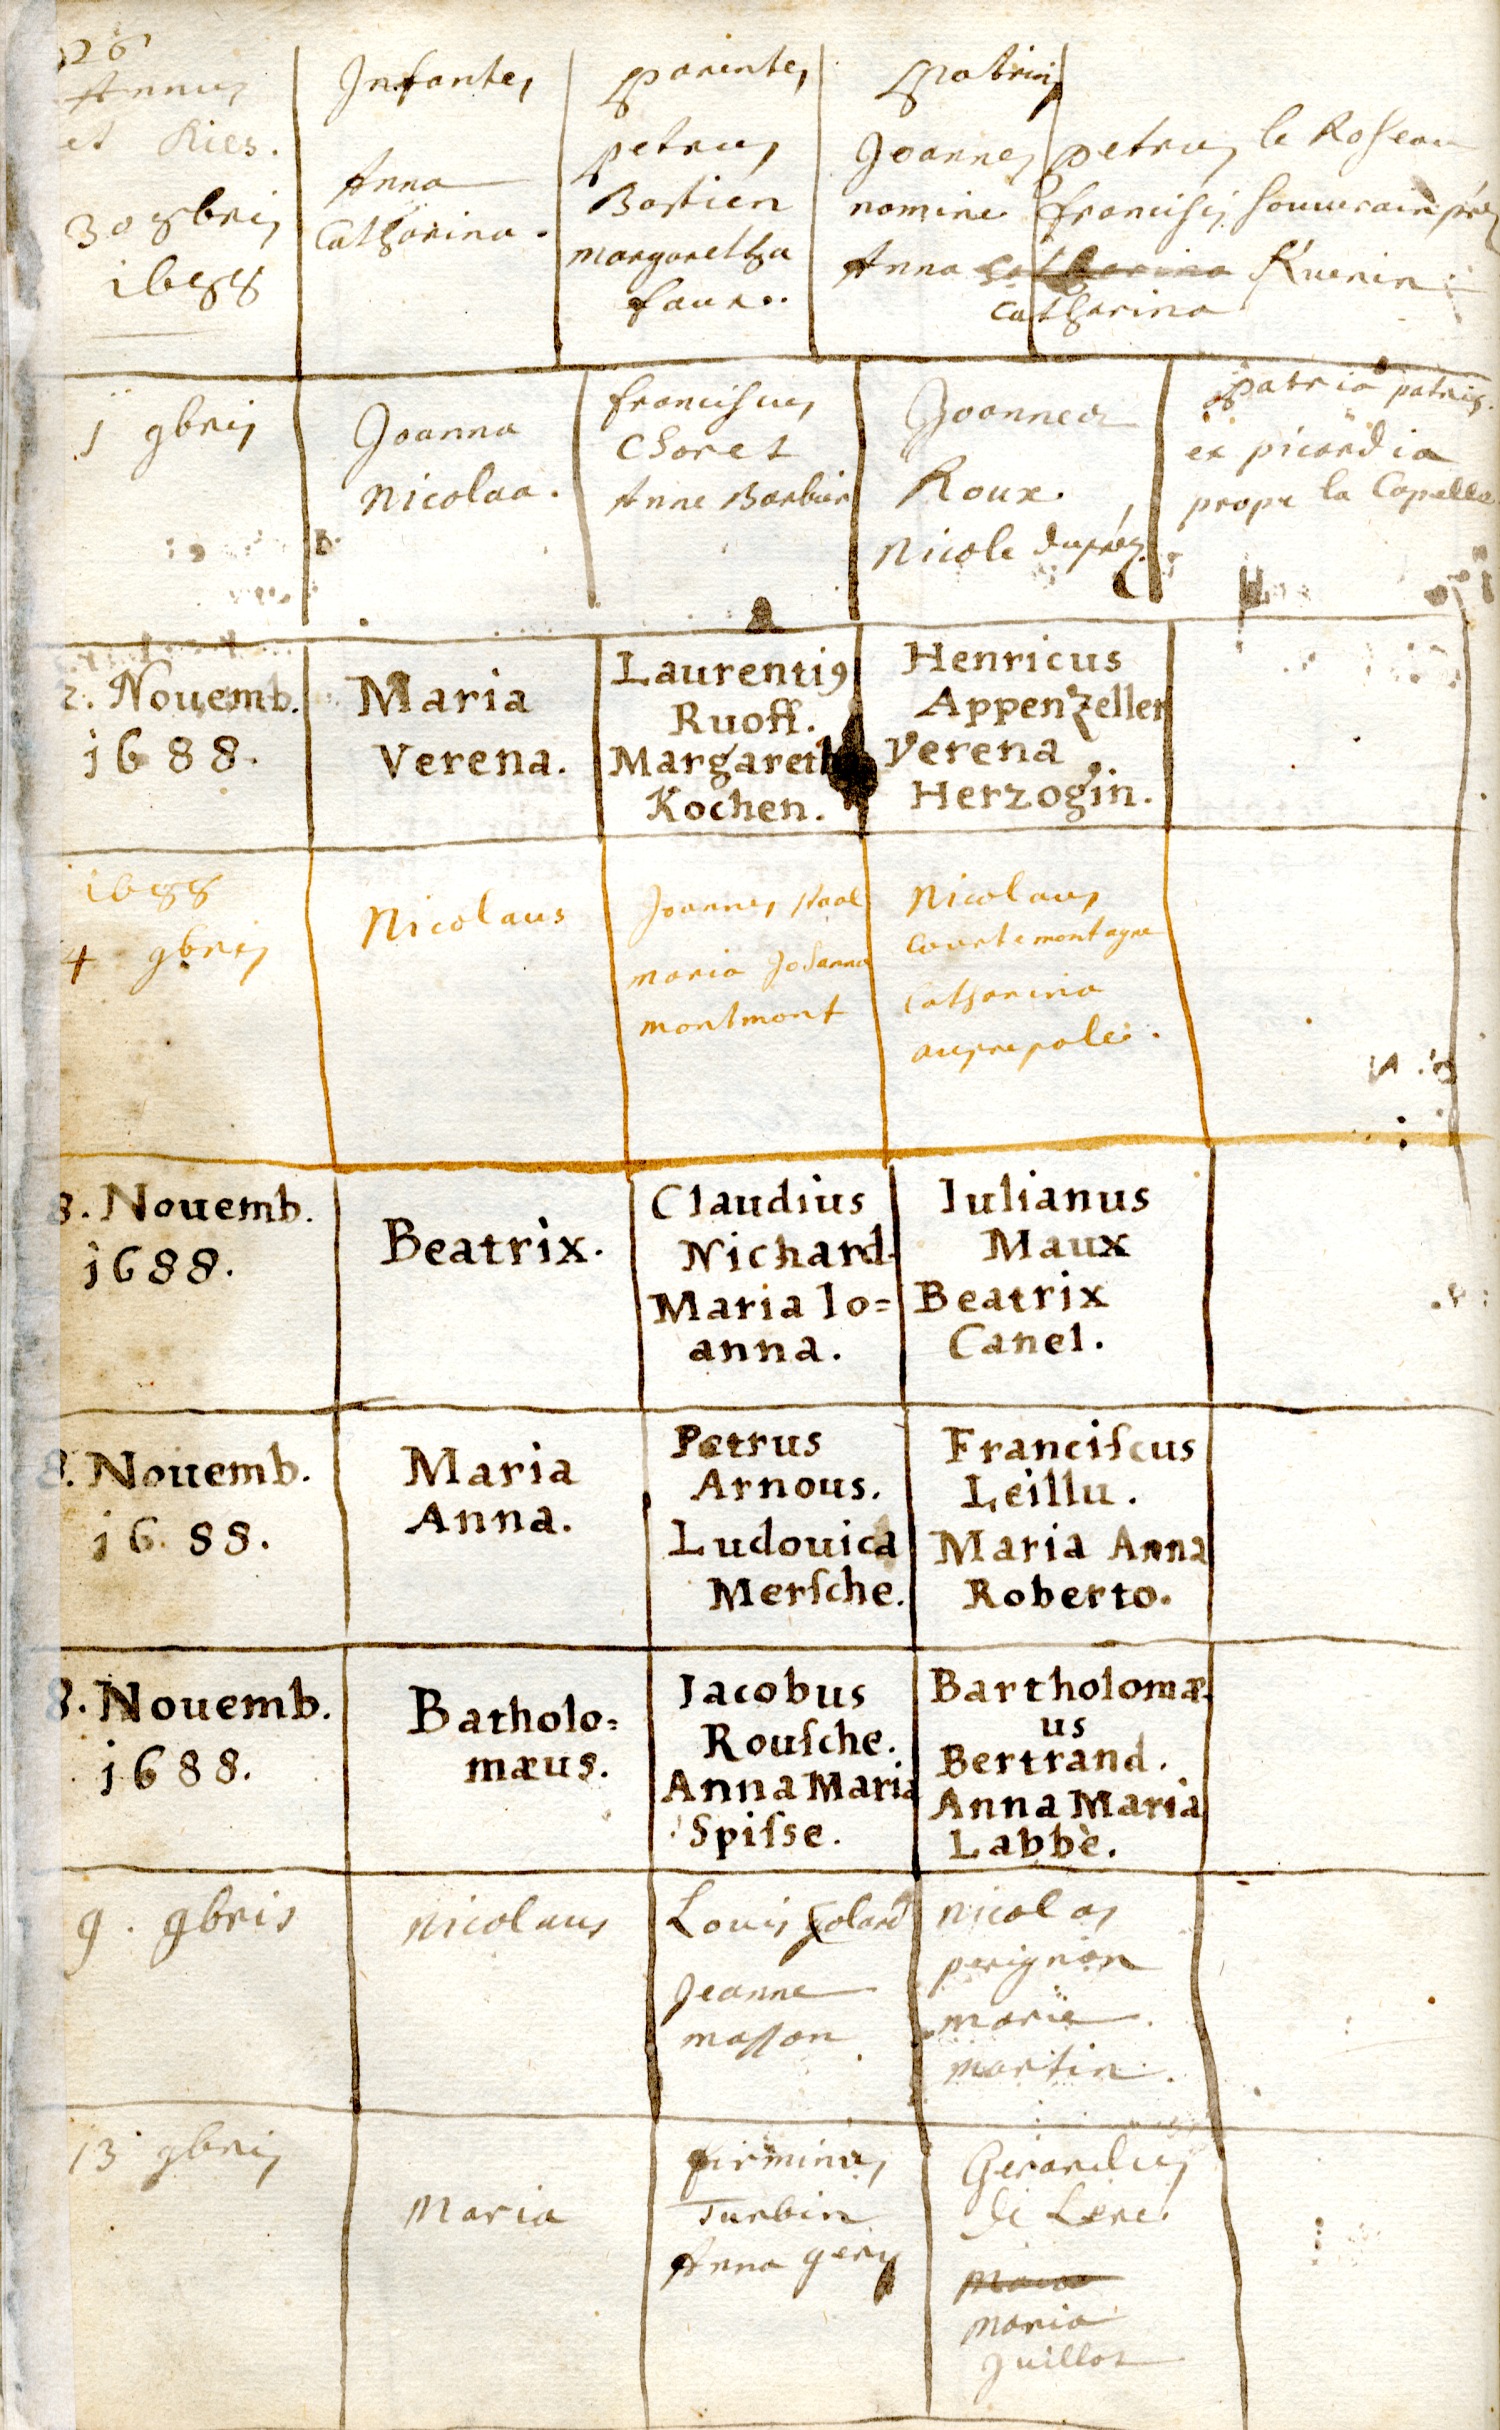 26
Annus
et dies.
Infantes
parentes
patrini
30 8bris
1688
Anna
Catharina.
petrus
Bastien
margaretha
faux.
Joannes petrus le Rosseau
nomine francisci souuerain
Anna Catharina Kuerin
Catharina
1 9bris
Joanna
Nicolaa.
franciscus
Choret
Anne Barbier
Joannes
Roux.
Nicole dupréz
patria patris
ex picardia
prope la Capelle
2. Nouemb.
1688.
Maria
Verena.
Laurentiꝰ
Ruoff.
Margareth
Kochen.
Henricus
Appenzeller
Verena
Herzogin.
1688
4 9bris
Nicolaus
Joannes
maria Johanna
montmont
Nicolaus
Courtemontagne
Catharina
8. Nouemb.
1688.
Beatrix.
Claudius
Nichard.
Maria Io=
anna.
Iulianus
Maux
Beatrix
Canel.
8. Nouemb.
1688.
Maria
Anna.
Petrus
Arnous.
Ludouica
Merſche.
Franciſcus
Leillu.
Maria Anna
Roberto.
8. Nouemb.
1688.
Batholo=
mæus.
Jacobus
Rouſche.
Anna Maria
Spiſse.
Bartholomæ
us
Bertrand.
Anna Maria
Labbè.
9. 9bris
Nicolaus
Louis
Jeanne
masson
Nicolas
perignon
marie
martin.
13 9bris
Maria
firminus
Turbin
Anna gery
Gerardus
de Lere.
Maria
maria
Juillot